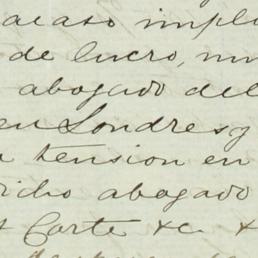 acaso impli
de lucro, mu
abogado del
en Londres y
a tension en
dicho abogado
Corte &c &